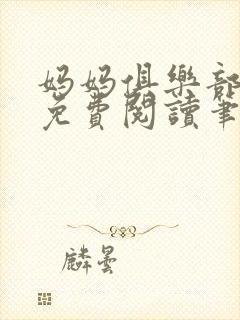 妈妈俱樂部
免費閱讀筆
麟曇